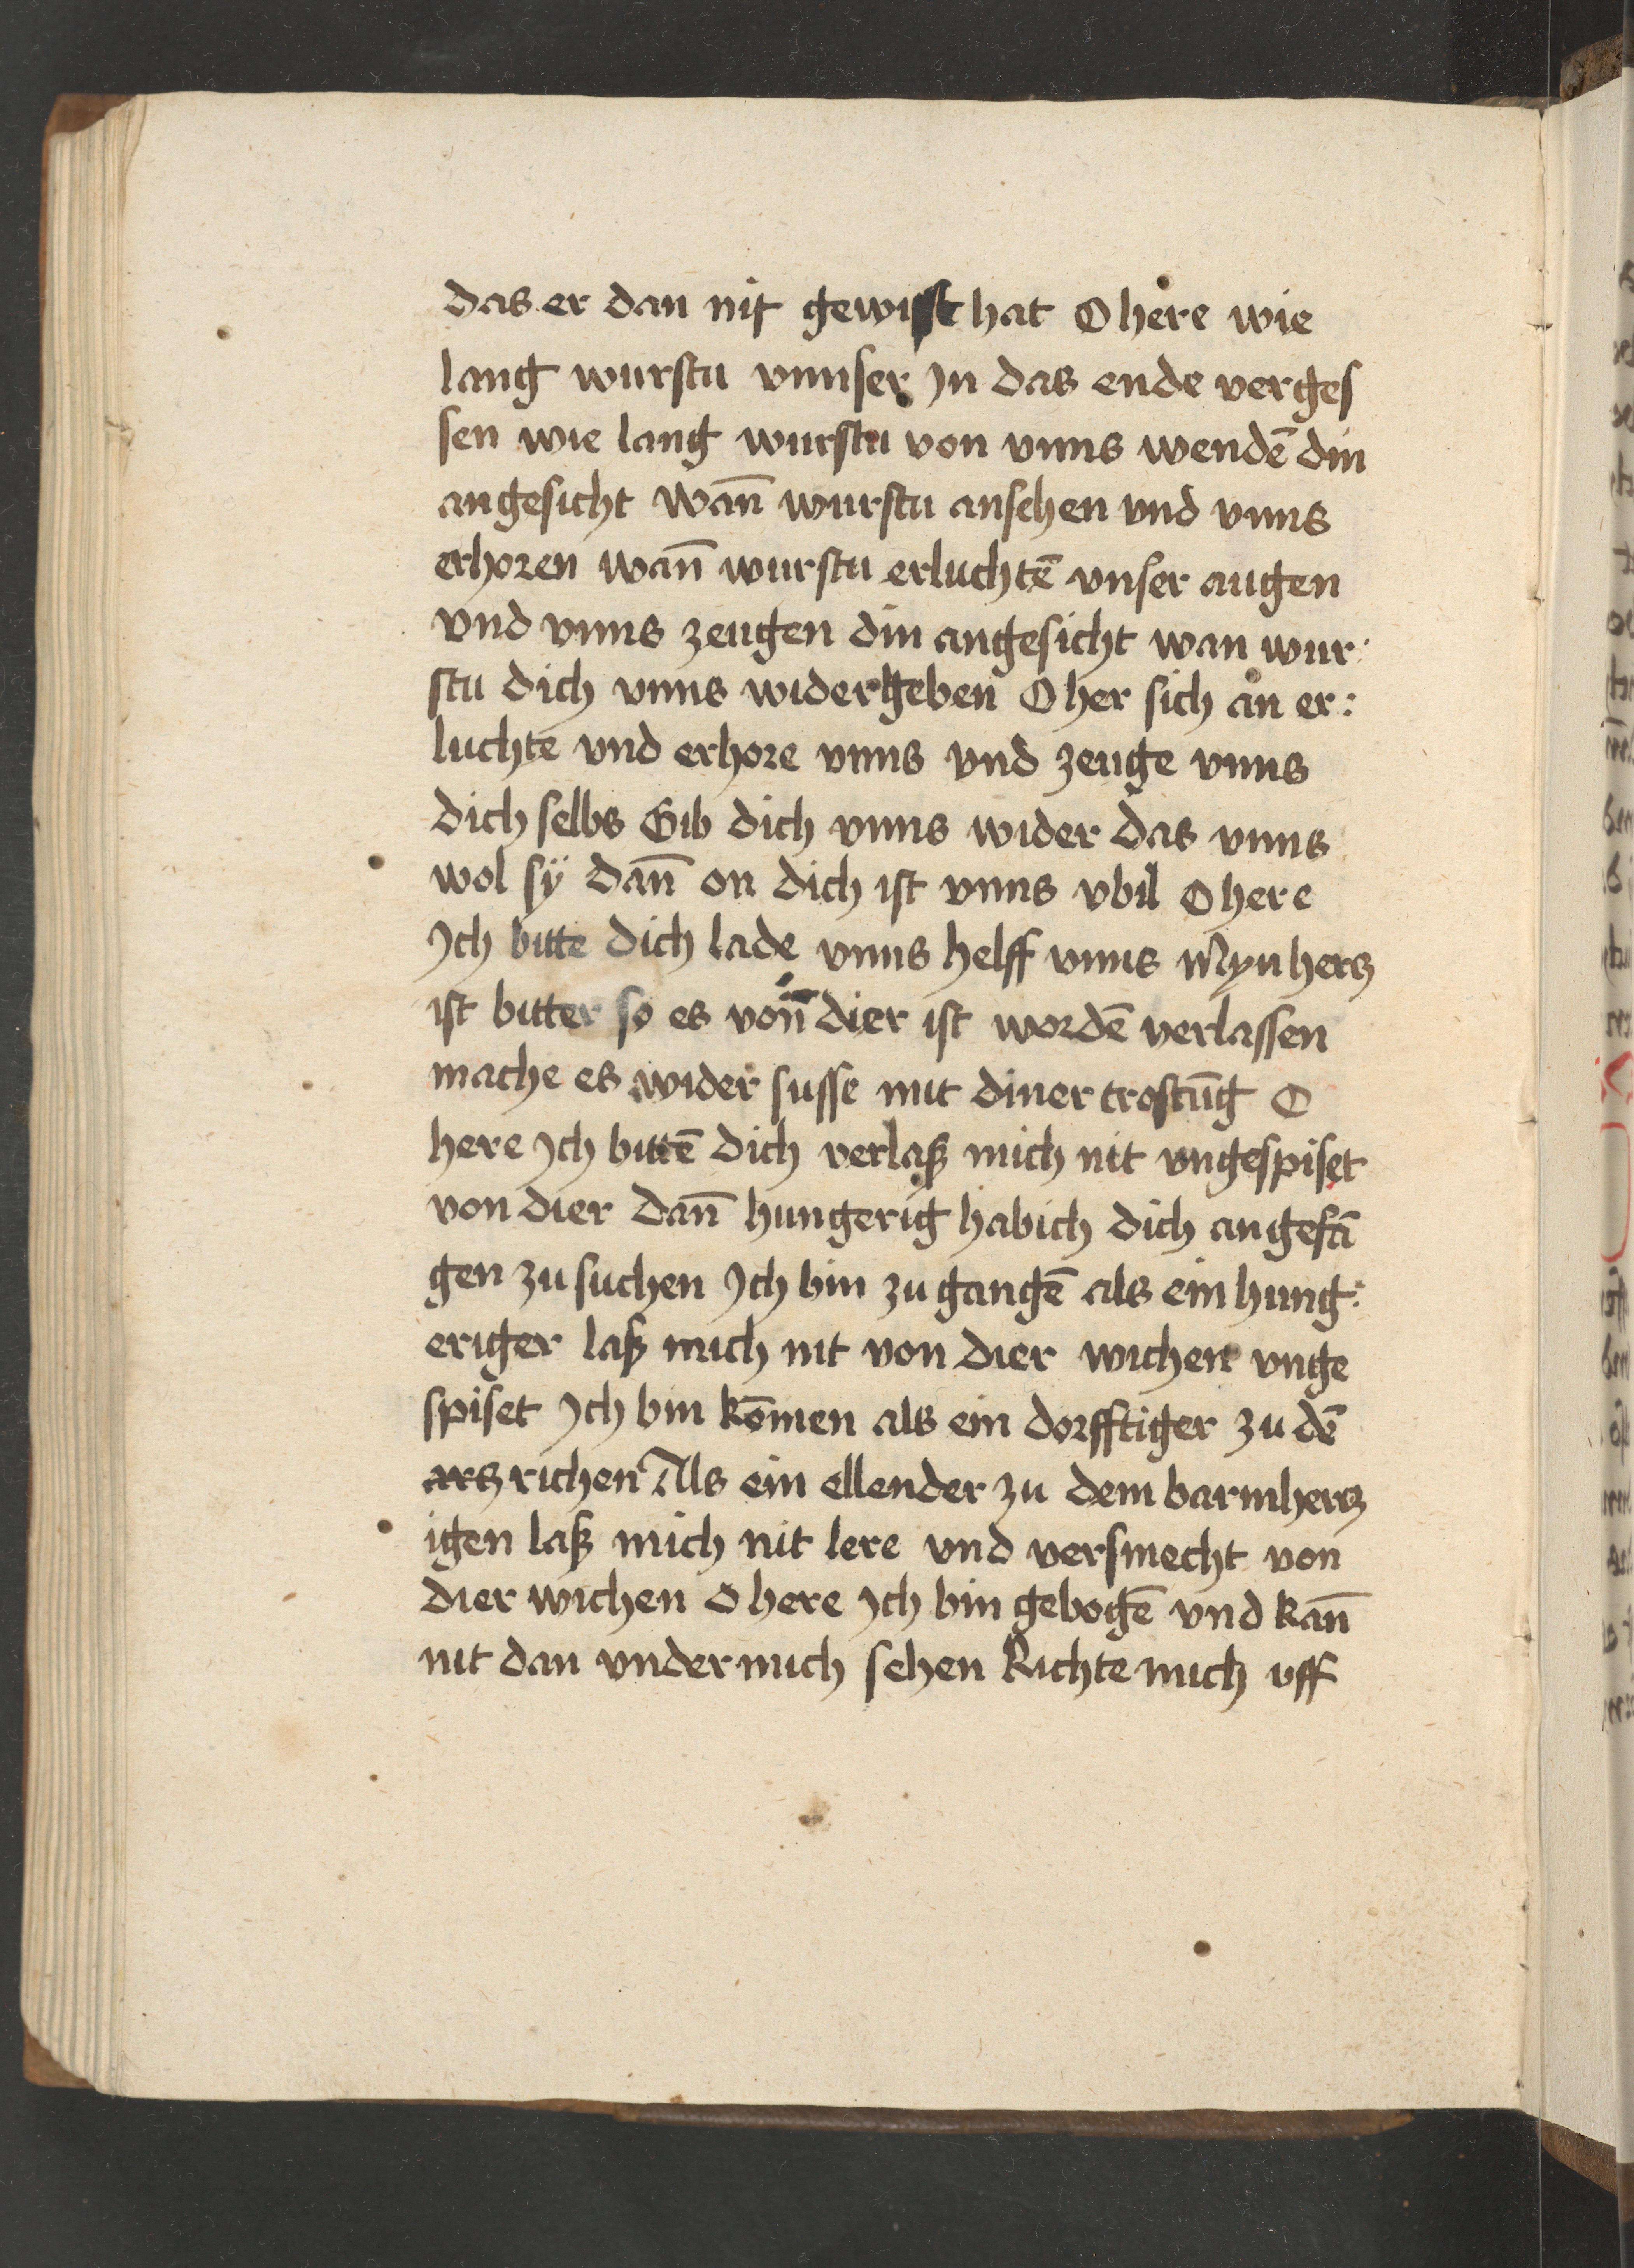 das er dan nit gewist hat O here wie
lang wurstu vnnser jn das ende verges
sen wie lang wurstu von vnns wendē din
angesicht wan̄ wurstu ansehen vnd vnns
erhoren wan̄ wurstu erluchtē vnser augen
vnd vnns zeugen din angesicht wan wur:
stu dich vnns widergeben O her sich an er:
luchte vnd erhore vnns vnd zeuge vnns
dich selbs Gib dich vnns wider das vnns
wol sÿ dan̄ on dich ist vnns vbil O here
Jch bitte dich lade vnns helff vnns Myn hertz
ist bitter so es von̄ dier ist wordē verlassen
mache es wider susse mit diner trostūg O
here Jch bittē dich verlaß mich nit vngespiset
von dier dan̄ hungerig habich dich angefā
gen zu suchen Jch bin zu gangē als ein hung:
eriger laß mich nit von dier wichen vnge
spiset Jch bin kōmen als ein dorfftiger zu dē
richen Als ein ellender zu dem barmhertz
igen laß mich nit lere vnd versmecht von
dier wichen O here Jch bin gebogē vnd kan̄
nit dan vnder mich sehen Richte mich vff